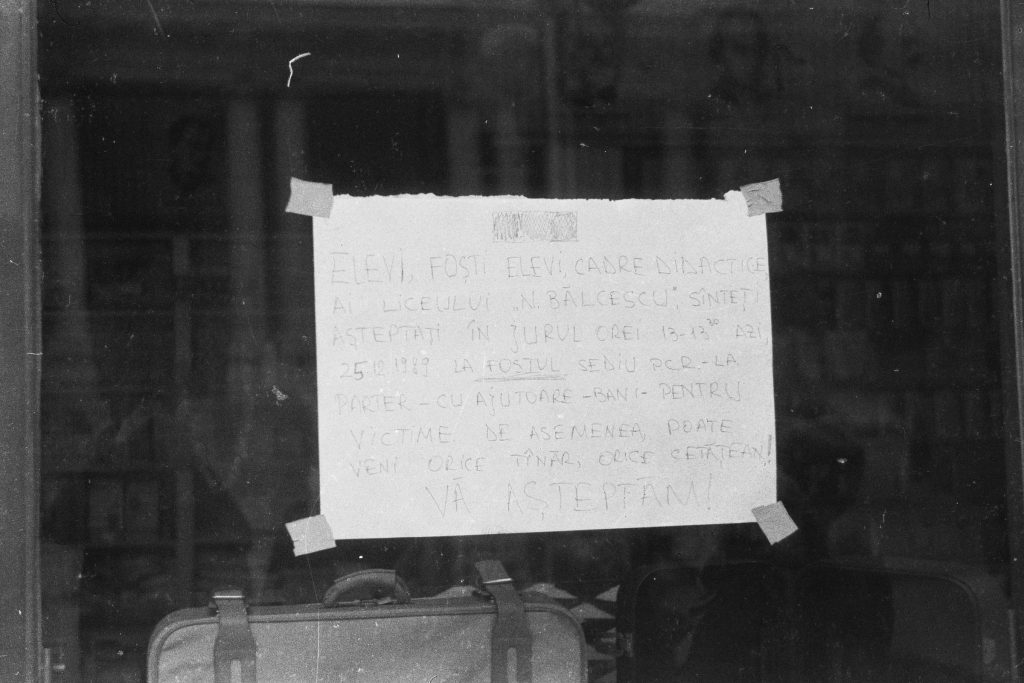 ELEVI, FOȘTI ELEVI, CADRE DIDACTICE,
AI LICEULUI „N. BĂLCESCU”, SÎNTEȚI
AȘTEPTAȚI ÎN JURUL OREI 13-13³⁰ AZI,
25.12.1989 LA FOSTUL SEDIU P.C.R. - LA
PARTER - CU AJUTOARE - BANI - PENTRU
VICTIME. DE ASEMENEA, POATE
VENI ORICE TÎNĂR, ORICE CETĂȚEAN!
VĂ AȘTEPTĂM!